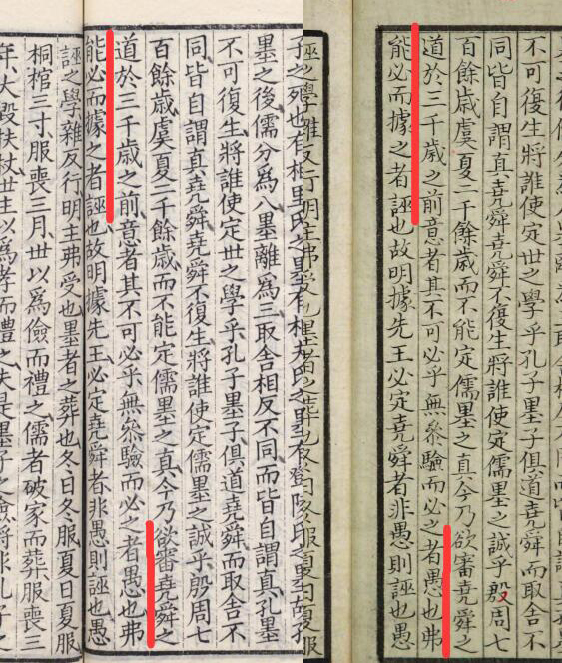 不可復生將誰使定世之學乎孔子墨子俱道堯舜而取舍不
同皆自謂真堯舜堯舜不復生將誰使定儒墨之誠乎殷周七
百餘歲虞夏二千餘歲而不能定儒墨之真今乃欲審堯舜之
道於三千歲之前意者其不可必乎無參驗而必之者愚也弗
能必而據之者誣也故明據先王必定堯舜者非愚則誣也愚
墨之後儒分為八墨離為三取舍相反不同而皆自謂真孔墨
不可復生將誰使定世之學乎孔子墨子俱道堯舜而取舍不
同皆自謂真堯舜堯舜不復生將誰使定儒墨之誠乎殷周七
百餘歲虞夏二千餘歲而不能定儒墨之真今乃欲審堯舜之
道於三千歲之前意者其不可必乎無參驗而必之者愚也弗
能必而據之者誣也故明據先王必定堯舜者非愚則誣也愚
誣之學雜反行明主弗受也墨者之葬也冬日冬服夏日夏服
桐棺三寸服喪三月世以為儉而禮之儒者破家而葬服喪三
年大毀扶杖世主以為孝而禮之夫是墨子之儉將非孔子